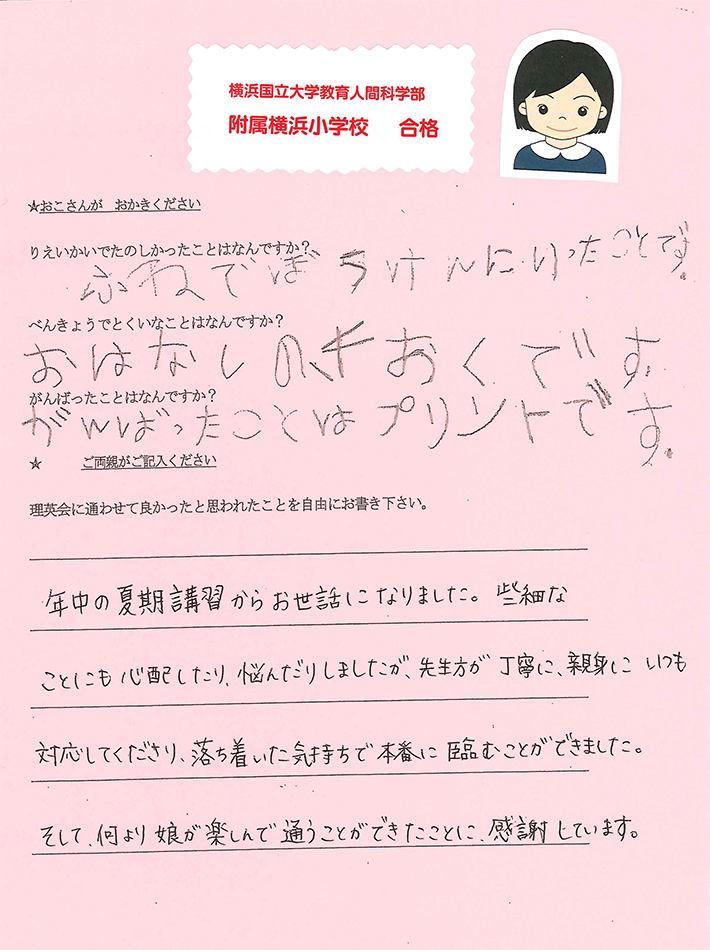 横浜国立大学教育人間科学部
附属横浜小学校 合格
☆おこさんが おかきください
りえいかいでたのしかったことはなんですか?
ふねでぼうけんにいったことです。
べんきょうでとくいなことはなんですか?
おはなしのきおくです
がんばったことはなんですか?
がんばったことはプリントです。
☆ ご両親がご記入ください
理英会に通わせて良かったと思われたことを自由にお書き下さい。
年中の夏期講習からお世話になりました。些細な
ことにも心配したり、悩んだりしましたが、先生方が丁寧に、親身に いつも
対応してくださり、落ち着いた気持ちで本番に臨むことができました。
そして、何より娘が楽しんで通うことができたことに、感謝しています。